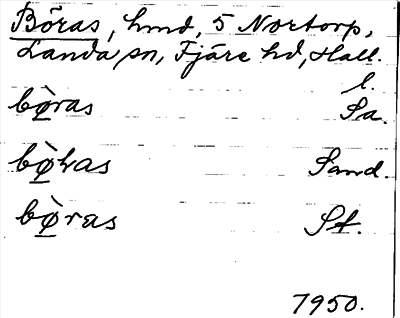 Böras, hmd, 5 Nortorp,
Landa sn, Fjäre hd, Hall.
l.
bø̀ras Sa.
bø̀ras Sand.
bø̀ras St.
1950.